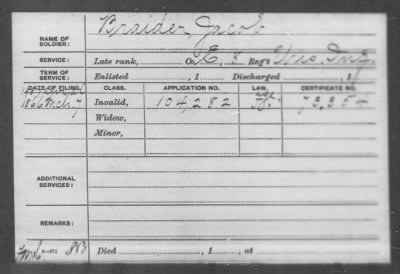 NAME OF SOLDIER: Braider, Jacob
SERVICE: Late rank, Co. E, 8 Reg't Wis. Inf.
TERM OF SERVICE: Enlisted , 1 Discharged , 1
DATE OF FILING. CLASS. APPLICATION NO. LAW. CERTIFICATE NO.
1866 Mch 7 Invalid, 104,282 73,354
Widow,
Minor,
ADDITIONAL SERVICES:
REMARKS:
Died , 1 , at